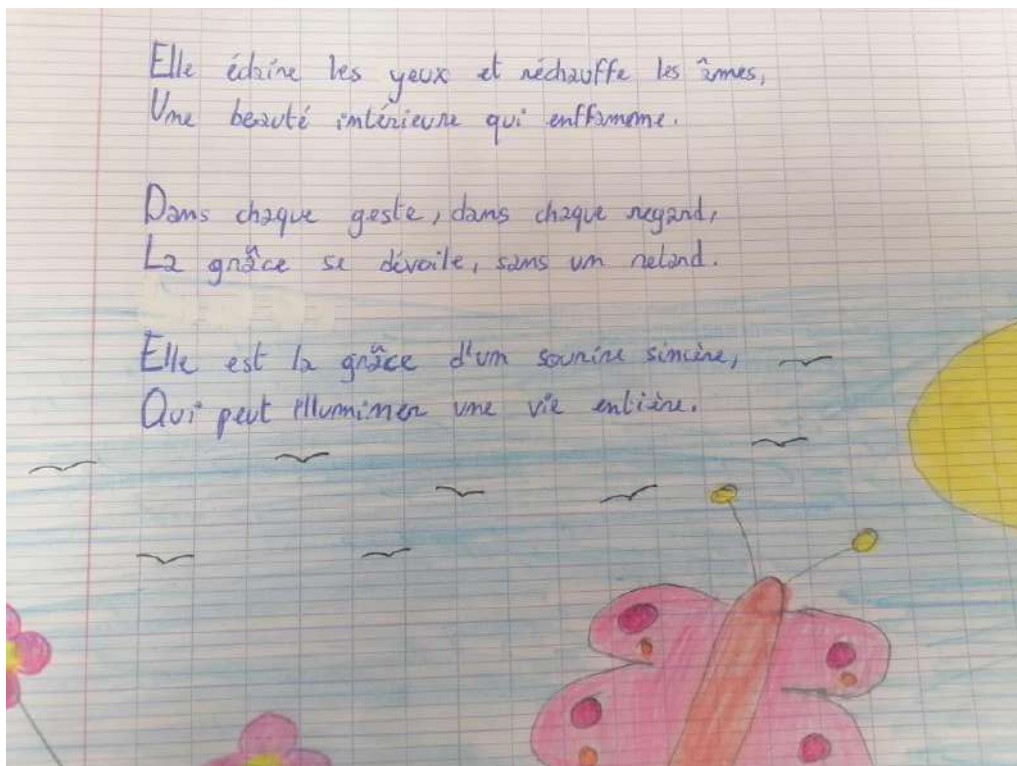 Elle éclaire les yeux et réchauffe les âmes,
Une beauté intérieure qui enffamme.
Dans chaque geste, dans chaque regard,
La grâce se dévoile, sans un retard.
Elle est la grâce d'un sourire sincère,
Qui peut illuminer une vie entière.